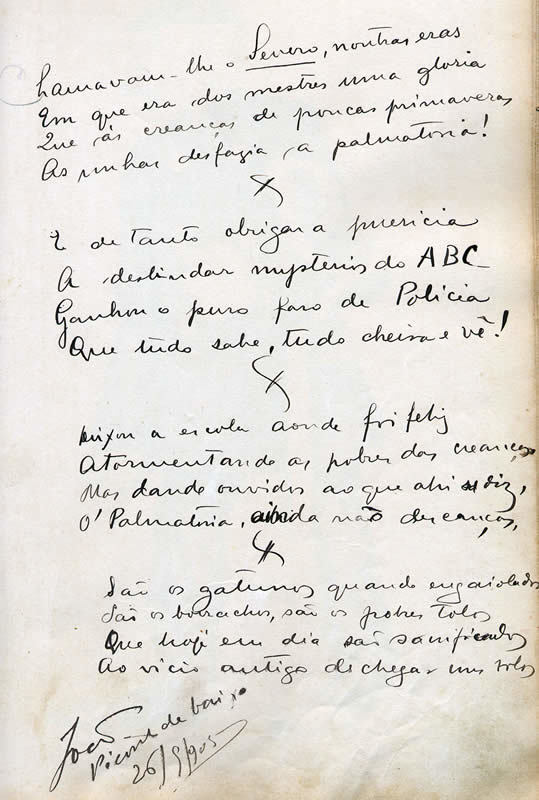 Chamavam-lhe o Severo, noutras eras
Em que era dos mestres uma gloria
Que ás creanças de poucas primaveras
As unhas desfazia a palmatoria!
E de tanto obrigar a puericia
A deslindar mysterios do ABC
Ganhou o puro faro de Policia
Que tudo sabe, tudo cheira e vê!
Deixou a escola aonde foi feliz
Atormentando as pobres das creanças
Mas dando ouvidos ao que ahi se diz,
O' Palmatória, ainda não descanças,
São os gatunos quando engaiolados
São os borrachos, são os pobres tolos
Que hoje em dia são sacrificados
Ao vicio antigo de chegar uns bolos
João
Vicente de
26/5/905